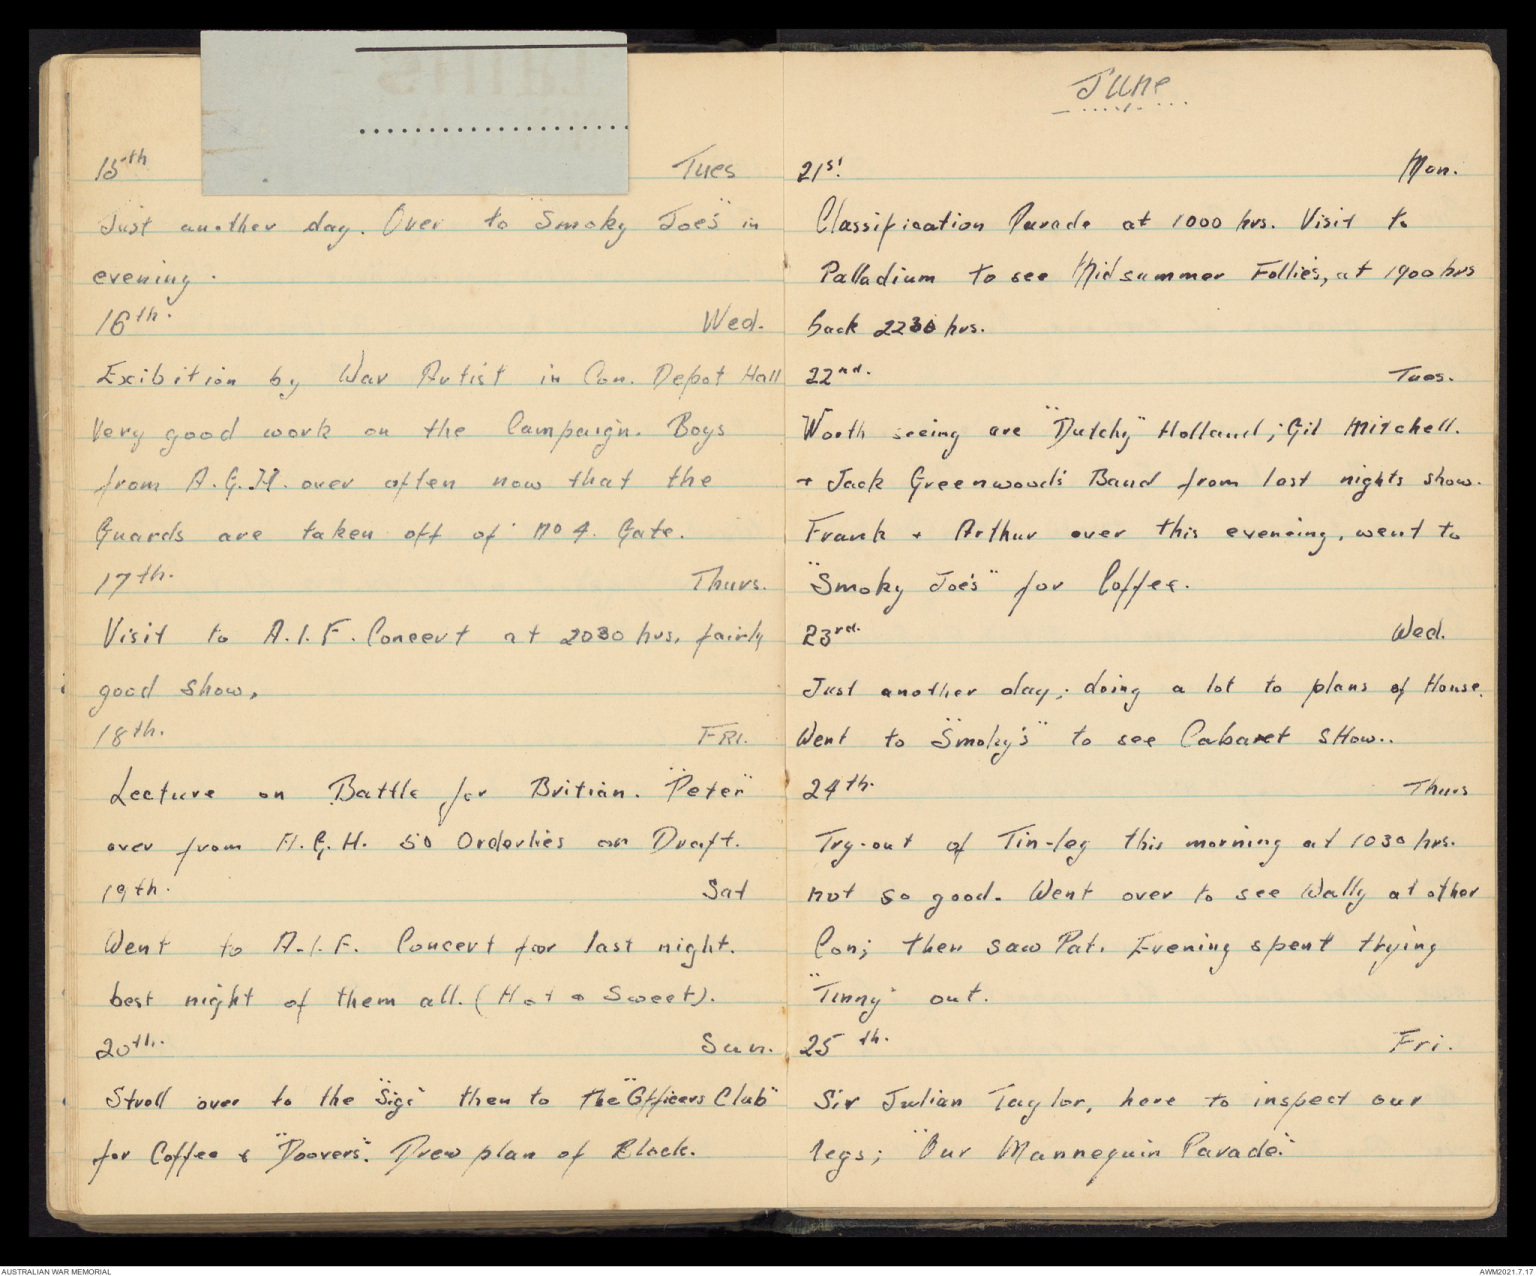 15th Tues
Just another day. Over to "Smoky Joe's" in
evening.
16th. Wed.
Exibition by War Artist in Con. Depot Hall
Very good work on the Campaign. Boys
from A.G.H. over often now that the
Guards are taken off of No 4. Gate.
17th. Thurs.
Visit to A.I.F. Concert at 2030 hrs, fairly
good show.
18th. FRI.
Lecture on Battle for Britian. "Peter"
over from A.G.H. 50 Orderlies on Draft.
19th. Sat
Went to A.I.F. Concert for last night.
best night of them all. (Hot & Sweet).
20th. Sun.
Stroll over to the "Sigs" then to The "Officers Club"
for Coffee & "Doovers". Drew plan of Block.
June
21st. Mon.
Classification Parade at 1000 hrs. Visit to
Palladium to see Midsummer Follies, at 1900 hrs
back 2230 hrs.
22nd. Tues.
Worth seeing are "Dutchy" Holland; Gil Mitchell.
+ Jack Greenwood's Band from last nights show.
Frank + Arthur over this evening, went to
"Smoky Joe's" for Coffee.
23rd. Wed.
Just another day; doing a lot to plans of House.
Went to "Smoky's" to see Cabaret SHow..
24th. Thurs
Try-out of Tin-leg this morning at 1030 hrs.
not so good. Went over to see Wally at other
Con; then saw Pat. Evening spent trying
"Tinny" out.
25th. Fri.
Sir Julian Taylor, here to inspect our
legs; "Our Mannequin Parade."
AUSTRALIAN WAR MEMORIAL
AWM2021.7.17